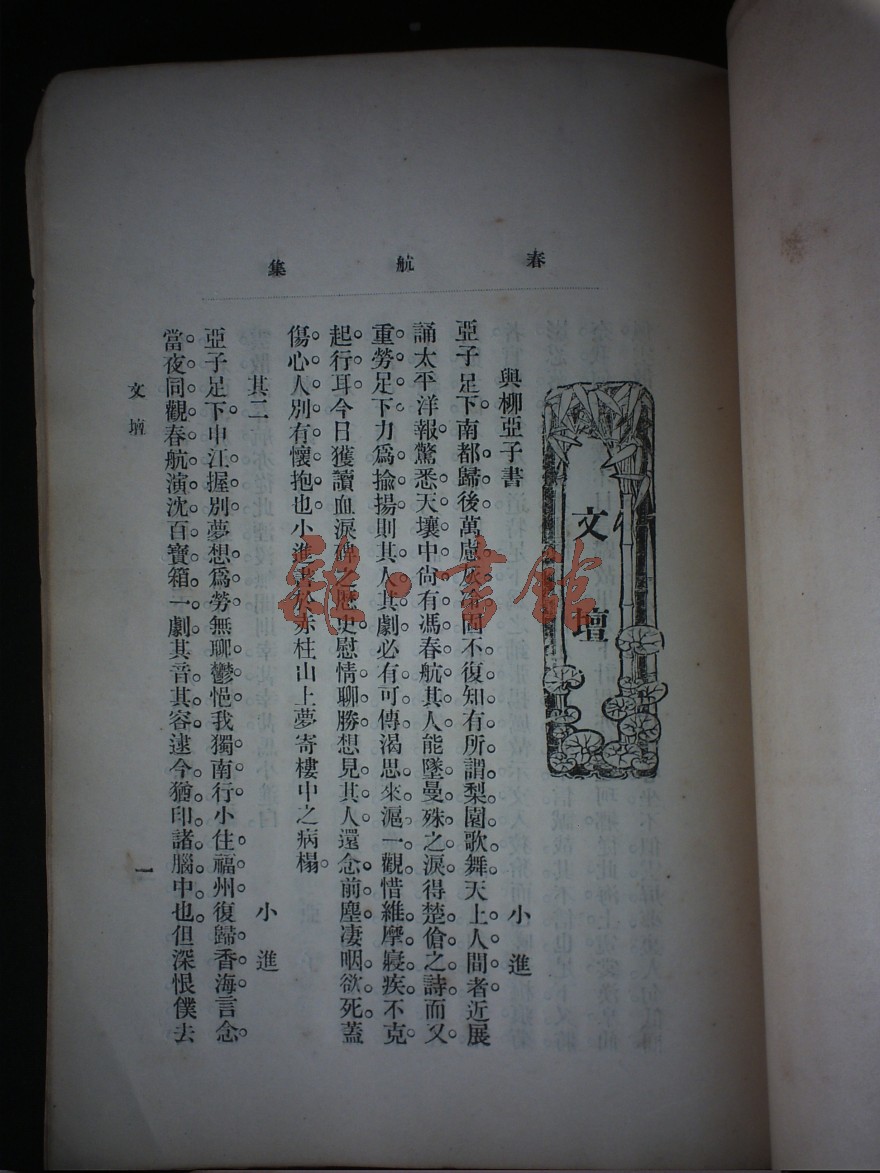 春航集
文壇
與柳亞子書
小進
亞子足下。南都歸後。萬慮灰冷。固不復知有所謂梨園歌舞天上人間者。近展
誦太平洋報。驚悉天壤中尚有馮春航其人。能墜曼殊之淚。得楚傖之詩。而又
重勞足下力爲揄揚。則其人其劇必有可傳。渴思來滬一觀。惜維摩寢疾。不克
起行耳。今日獲讀血淚碑之歷史。慰情聊勝。想見其人。還念前塵。凄咽欲死。蓋
傷心人別有懷抱也。小進書於赤柱山上夢寄樓中之病榻。
其二
小進
亞子足下。申江握別。夢想爲勞。無聊鬱悒。我獨南行。小住福州。復歸香海。言念
當夜同觀春航演沈百寶箱一劇。其音其容。逮今猶印諸腦中也。但深恨僕去
文壇
一
雜·書館